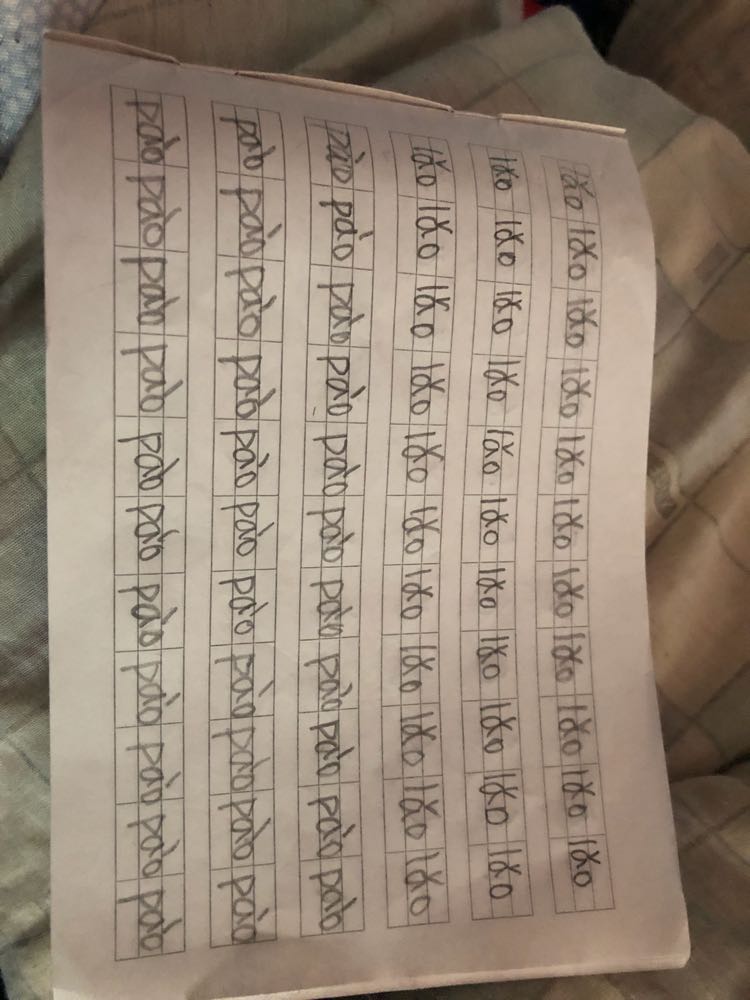 lǎo lǎo lǎo lǎo lǎo lǎo lǎo lǎo lǎo lǎo lǎo
lǎo lǎo lǎo lǎo lǎo lǎo lǎo lǎo lǎo lǎo lǎo
lǎo lǎo lǎo lǎo lǎo lǎo lǎo lǎo lǎo lǎo lǎo
pào pào pào pào pào pào pào pào pào pào pào
pào pào pào pào pào pào pào pào pào pào pào
pào pào pào pào pào pào pào pào pào pào pào